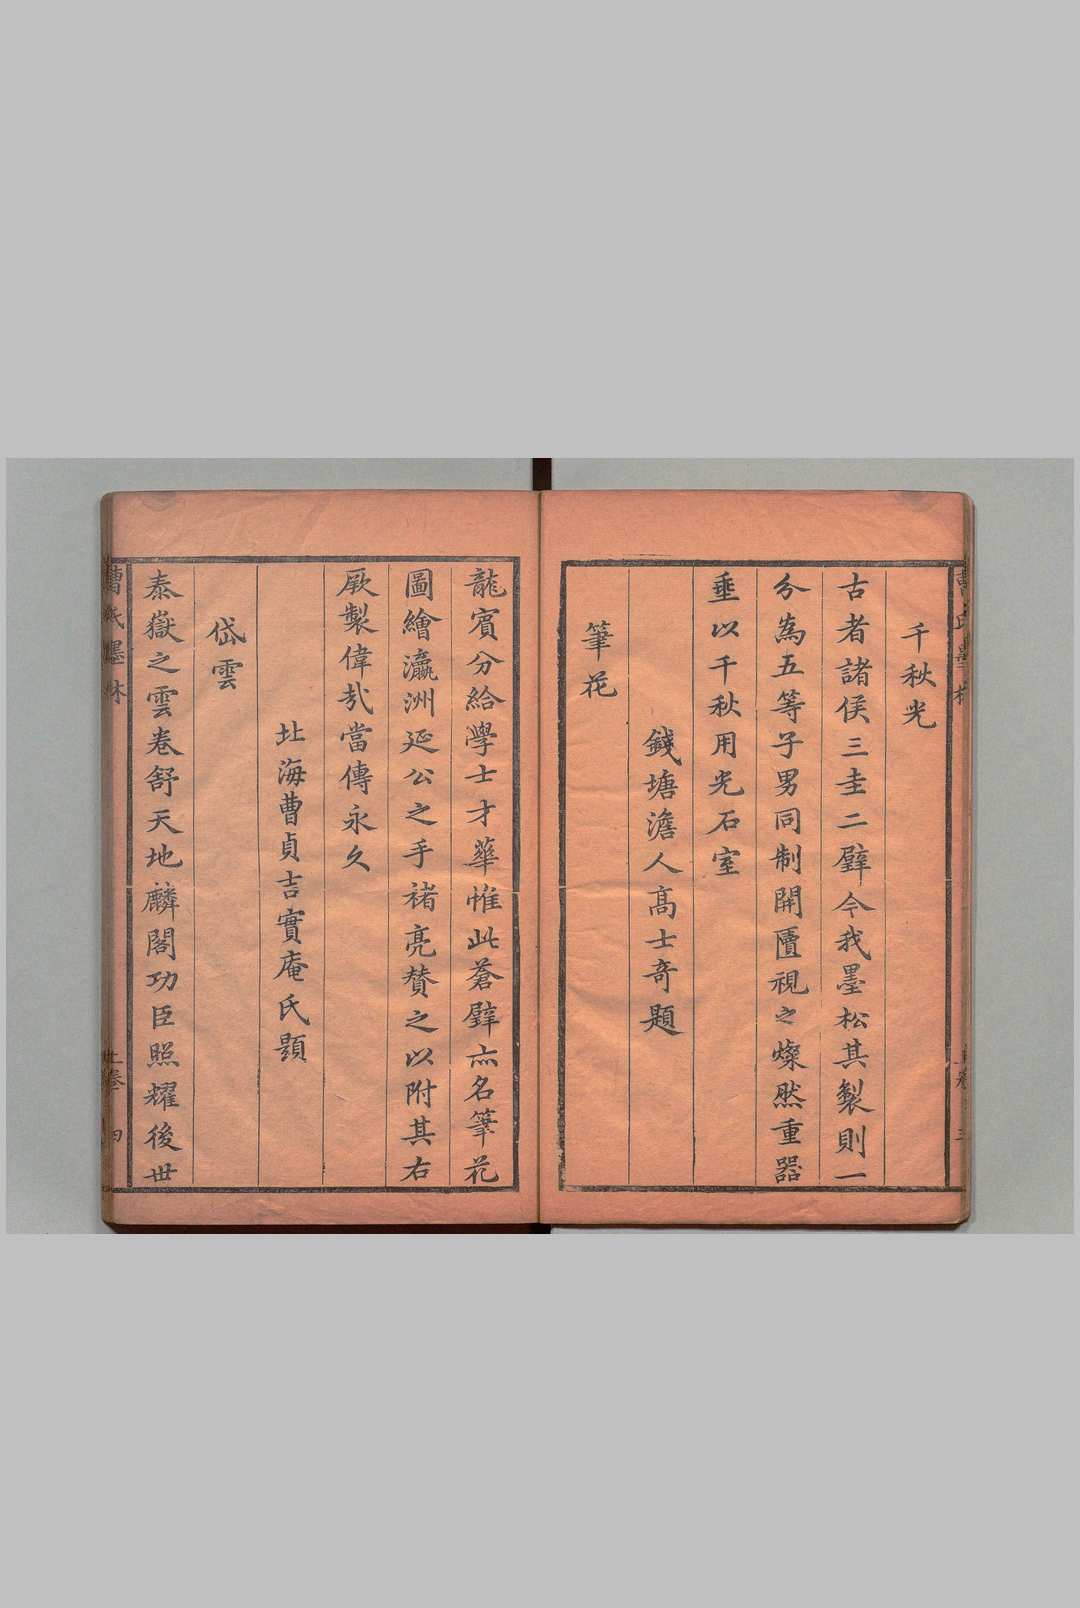 千秋光
古者諸侯三圭二璧今我墨松其製則一
分為五等子男同制開匵視之燦然重器
垂以千秋用光石室
錢塘澹人高士奇題
筆花
龍賓分給學士才華惟此蒼璧亦名筆花
圖繪瀛洲延公之手褚亮賛之以附其右
厥製偉哉當傳永久
北海曹貞吉實庵氏題
岱雲
泰嶽之雲卷舒天地麟閣功臣照耀後世
曹氏墨林
上卷
四